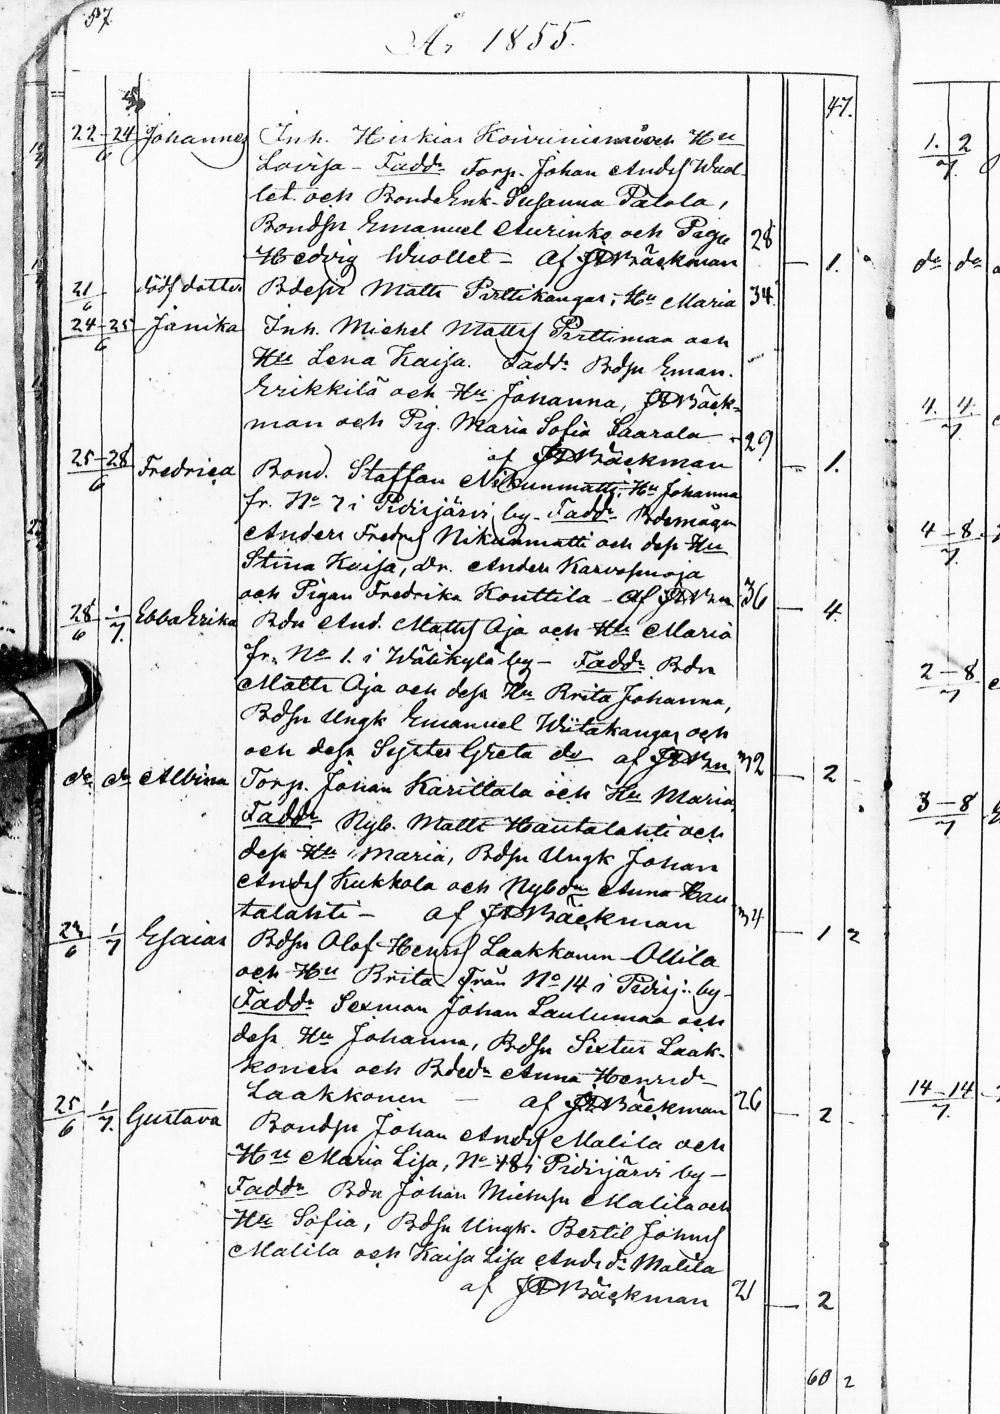 57.
År 1855.
47.
22-24/6 Johannes Inh. Hiskias Koiviniemi och Hu
Lovisa - Fadd: Torp. Johan Anders Wuol-
let och BondeEnk. Susanna Patala,
Bondsn Emanuel Aurinko och Pigu
Hedvig Wuollet - Af JABäckman 28 - 1.
21/6 dödf dotter Bdesn Matts Pirttikangas, Hu Maria 34.
24-25/6 Janika Inh. Michel Matts Pirttimaa och
Hu Lena Kaisa. Fadd: Bdsn Eman.
Erikkilä och Hu Johanna, JABäck-
man och Pig. Maria Sofia Saarala
af JABäckman 29 - 1.
25-28/6 Fredrica Bond. Staffan Nikunmatti, Hu Johanna
fr. No 7 i Pidisjärvi by - Fadd: Bdemågn
Anders Freds Nikunmatti och dess Hu
Stina Kaisa, Dr. Anders Karvosnoja
och Pigan Fredrika Konttila - af JABn 36 - 4.
28/6 1/7 Ebba Erika Bdn And. Matts Aja och Hu Maria
fr. No 1. i Wälikylä by - Fadd: Bdn
Matts Aja och dess Hu Brita Johanna,
Bdsn Ungk Emanuel Wiitakangas och
och dess Syster Greta do af JABn 32 - 2
do do Albina Torp. Johan Karittala och Hu Maria
Fadd: Nyb. Matts Hautalahti och
dess Hu Maria, Bdsn Ungk Johan
Anders Kukkola och Nybdr Anna Hau
talahti - af JABäckman 34 - 1 2
23/6 1/7 Esaias Bdsn Olof Henrs Laakkonen Ollila
och Hu Brita från No 14 i Pidisj: by -
Fadd: Sexman Johan Laulumaa och
dess Hu Johanna, Bdsn Sixtus Laak-
konen och Bdedr Anna Henrsdr
Laakkonen - af JABäckman 26 - 2
25/6 1/7. Gustava Bondsn Johan Anders Malila och
Hu Maria Lisa, No 48 i Pidisjärvi by -
Fadd: Bdn Johan Michelsn Malila och
Hu Sofia, Bdsn Ungk. Bertil Johns
Malila och Kaisa Lisa Andsdr Malila
af JABäckman 21 - 2
60 2
1. 2/7
do do
4. 4/7
4-8/7.
2-8/7
3-8/7
14-14/7.